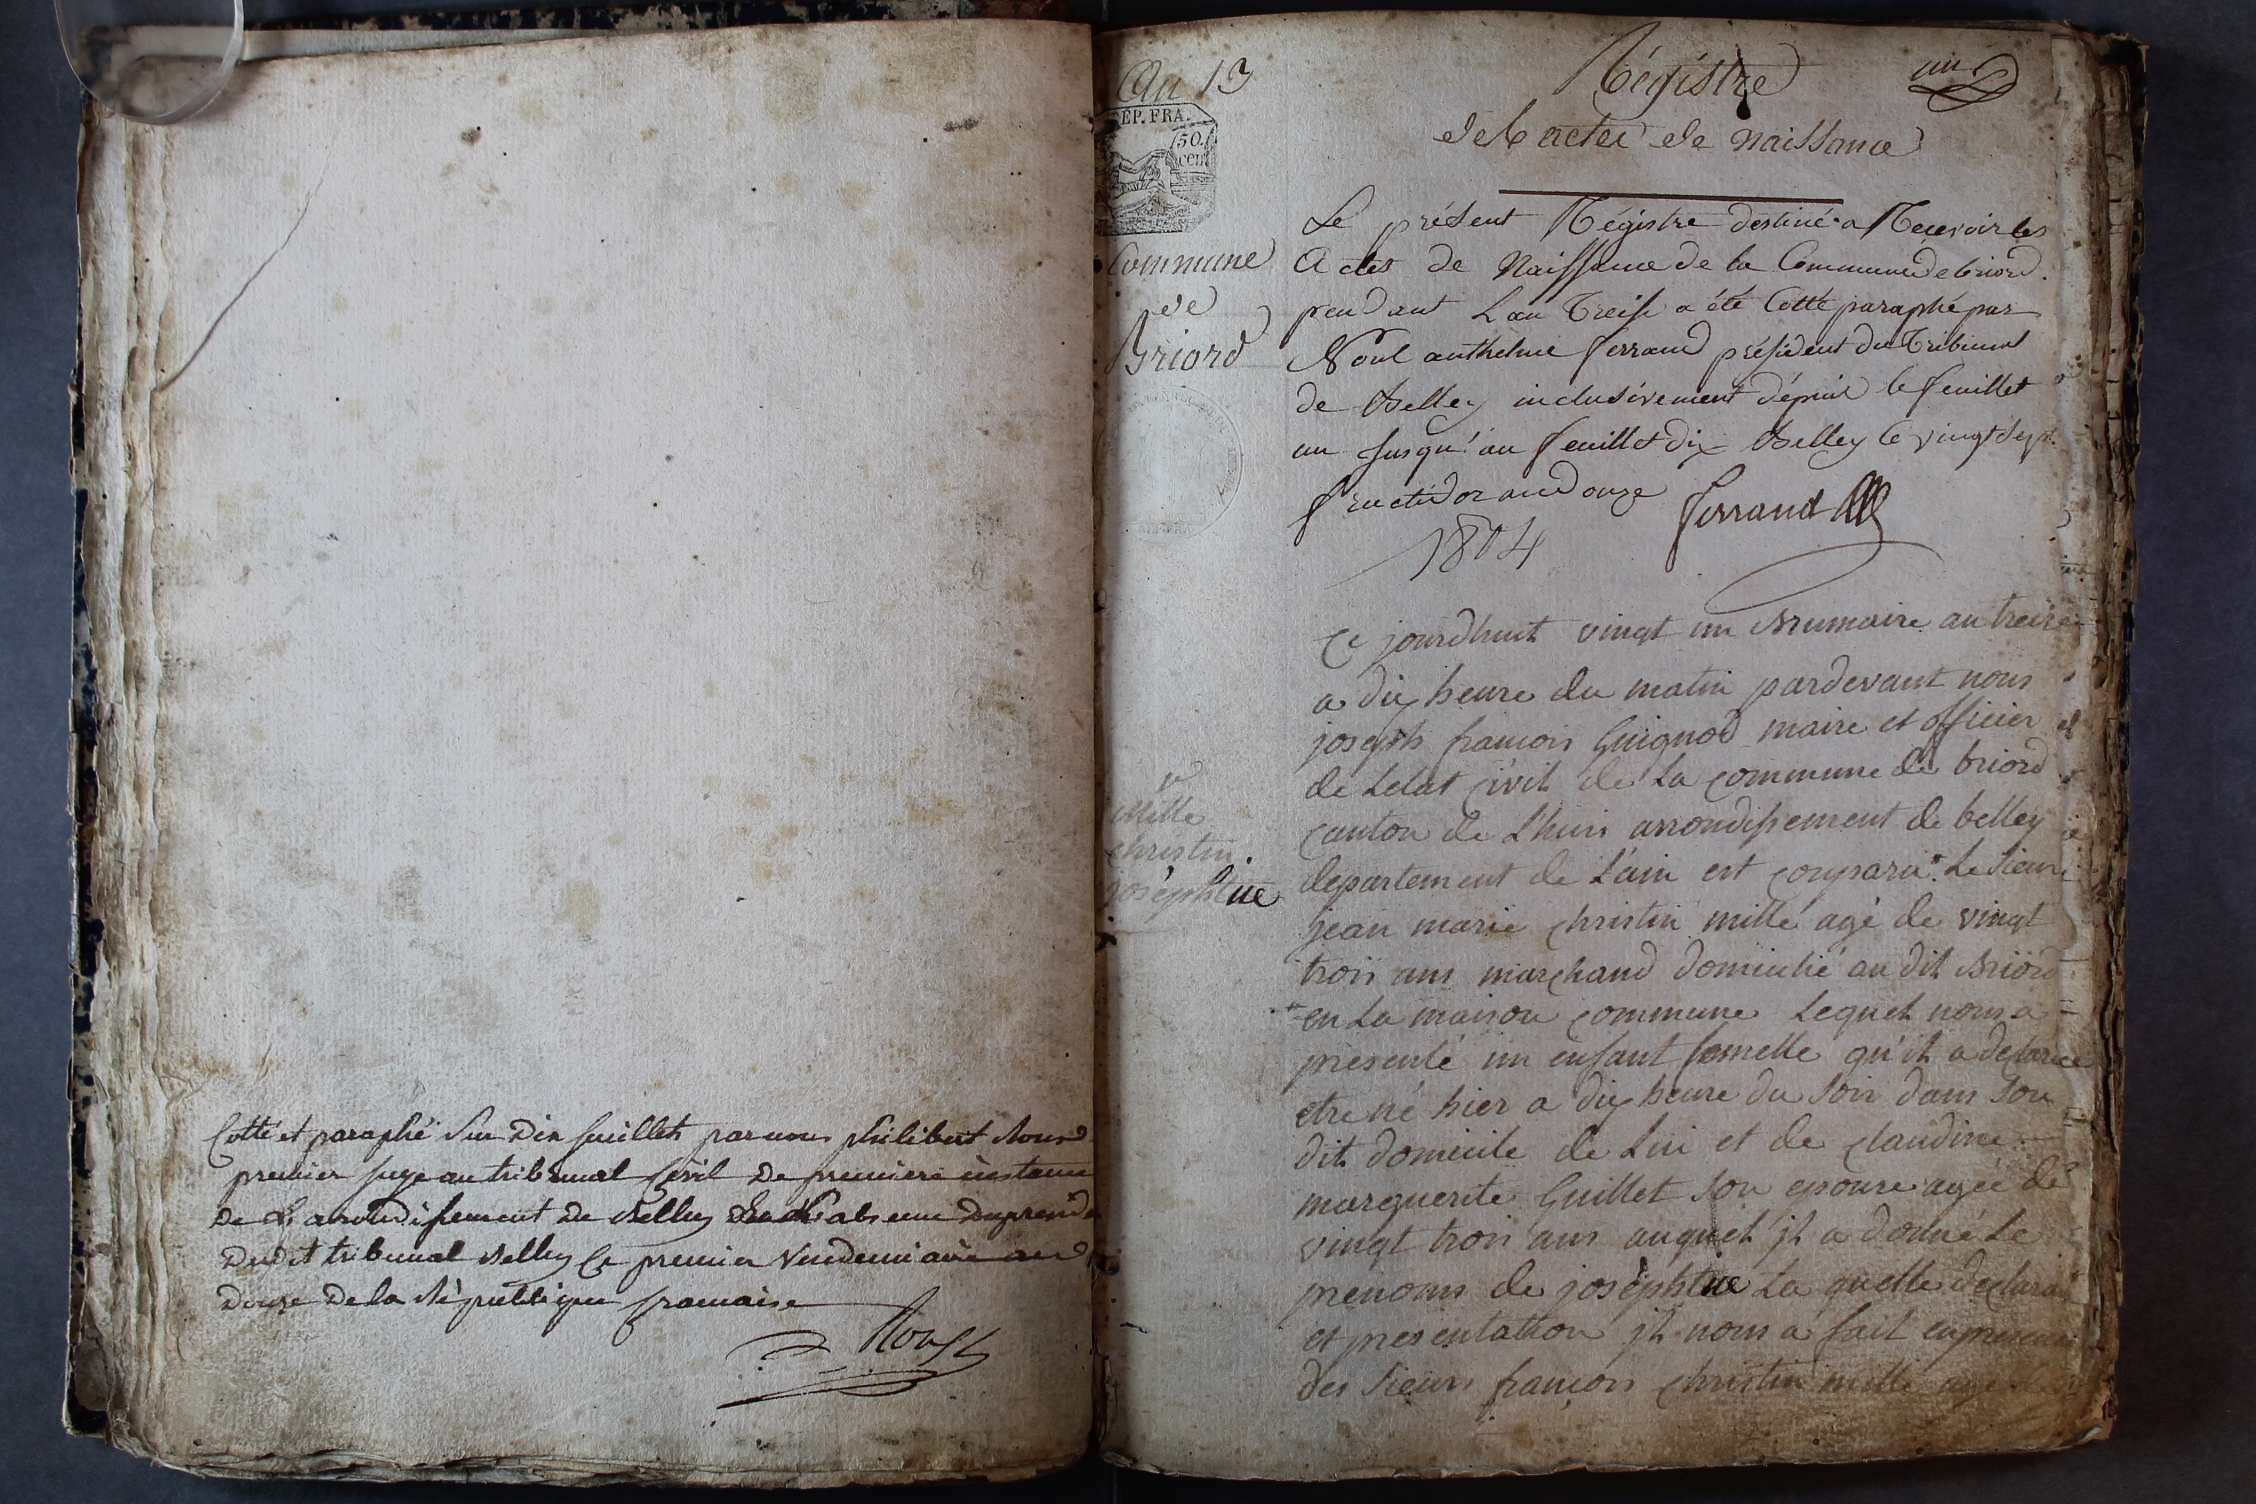 Cotté et paraphé sur dix feuillets par nous philibert
premier juge au tribunal civil de premiere instance
de L'arrondissement de Belley
dudit tribunal Belley ce premier vendemiaire an
douze de la République francaise
An 13
REP. FRA.
50
cent
Commune
de
Briord
Mille
christin
josephtue
Régistre
un
des actes de naissance
Le présent Régistre destiné a Recevoir les
Actes de Naissance de la Commune de briord
pendant L'an Treise a été Cotté paraphé par
Nous anthelme ferrand président du Tribunal
de Belley inclusivement dépuis le feuillet
un Jusqu'au feuillet dix Belley le vingt sept
fructidor an douze
ferrand
1804
Ce jourdhuit vingt un Brumaire an treize
a dix heure du matin pardevant nous
joseph francois Guignod maire et officier
de Letat civil de La commune de briord
canton de Lhuis arrondissement de belley
departement de L'ain est comparu Le Sieur
jean marie christin mille agé de vingt
trois ans marchand domicilié au dit Briord
en La maison commune Lequel nous a
presenté un enfant femelle qu'il a declaré
etre né hier a dix heure du soir dans son
dit domicile de Lui et de claudine
marguerite Guillet son epouse agée de
vingt trois ans auquel jl a donné Le
prenoms de josephtue La quelle declara
et presentation jl nous a fait en presence
des Sieurs francois christin mille agé